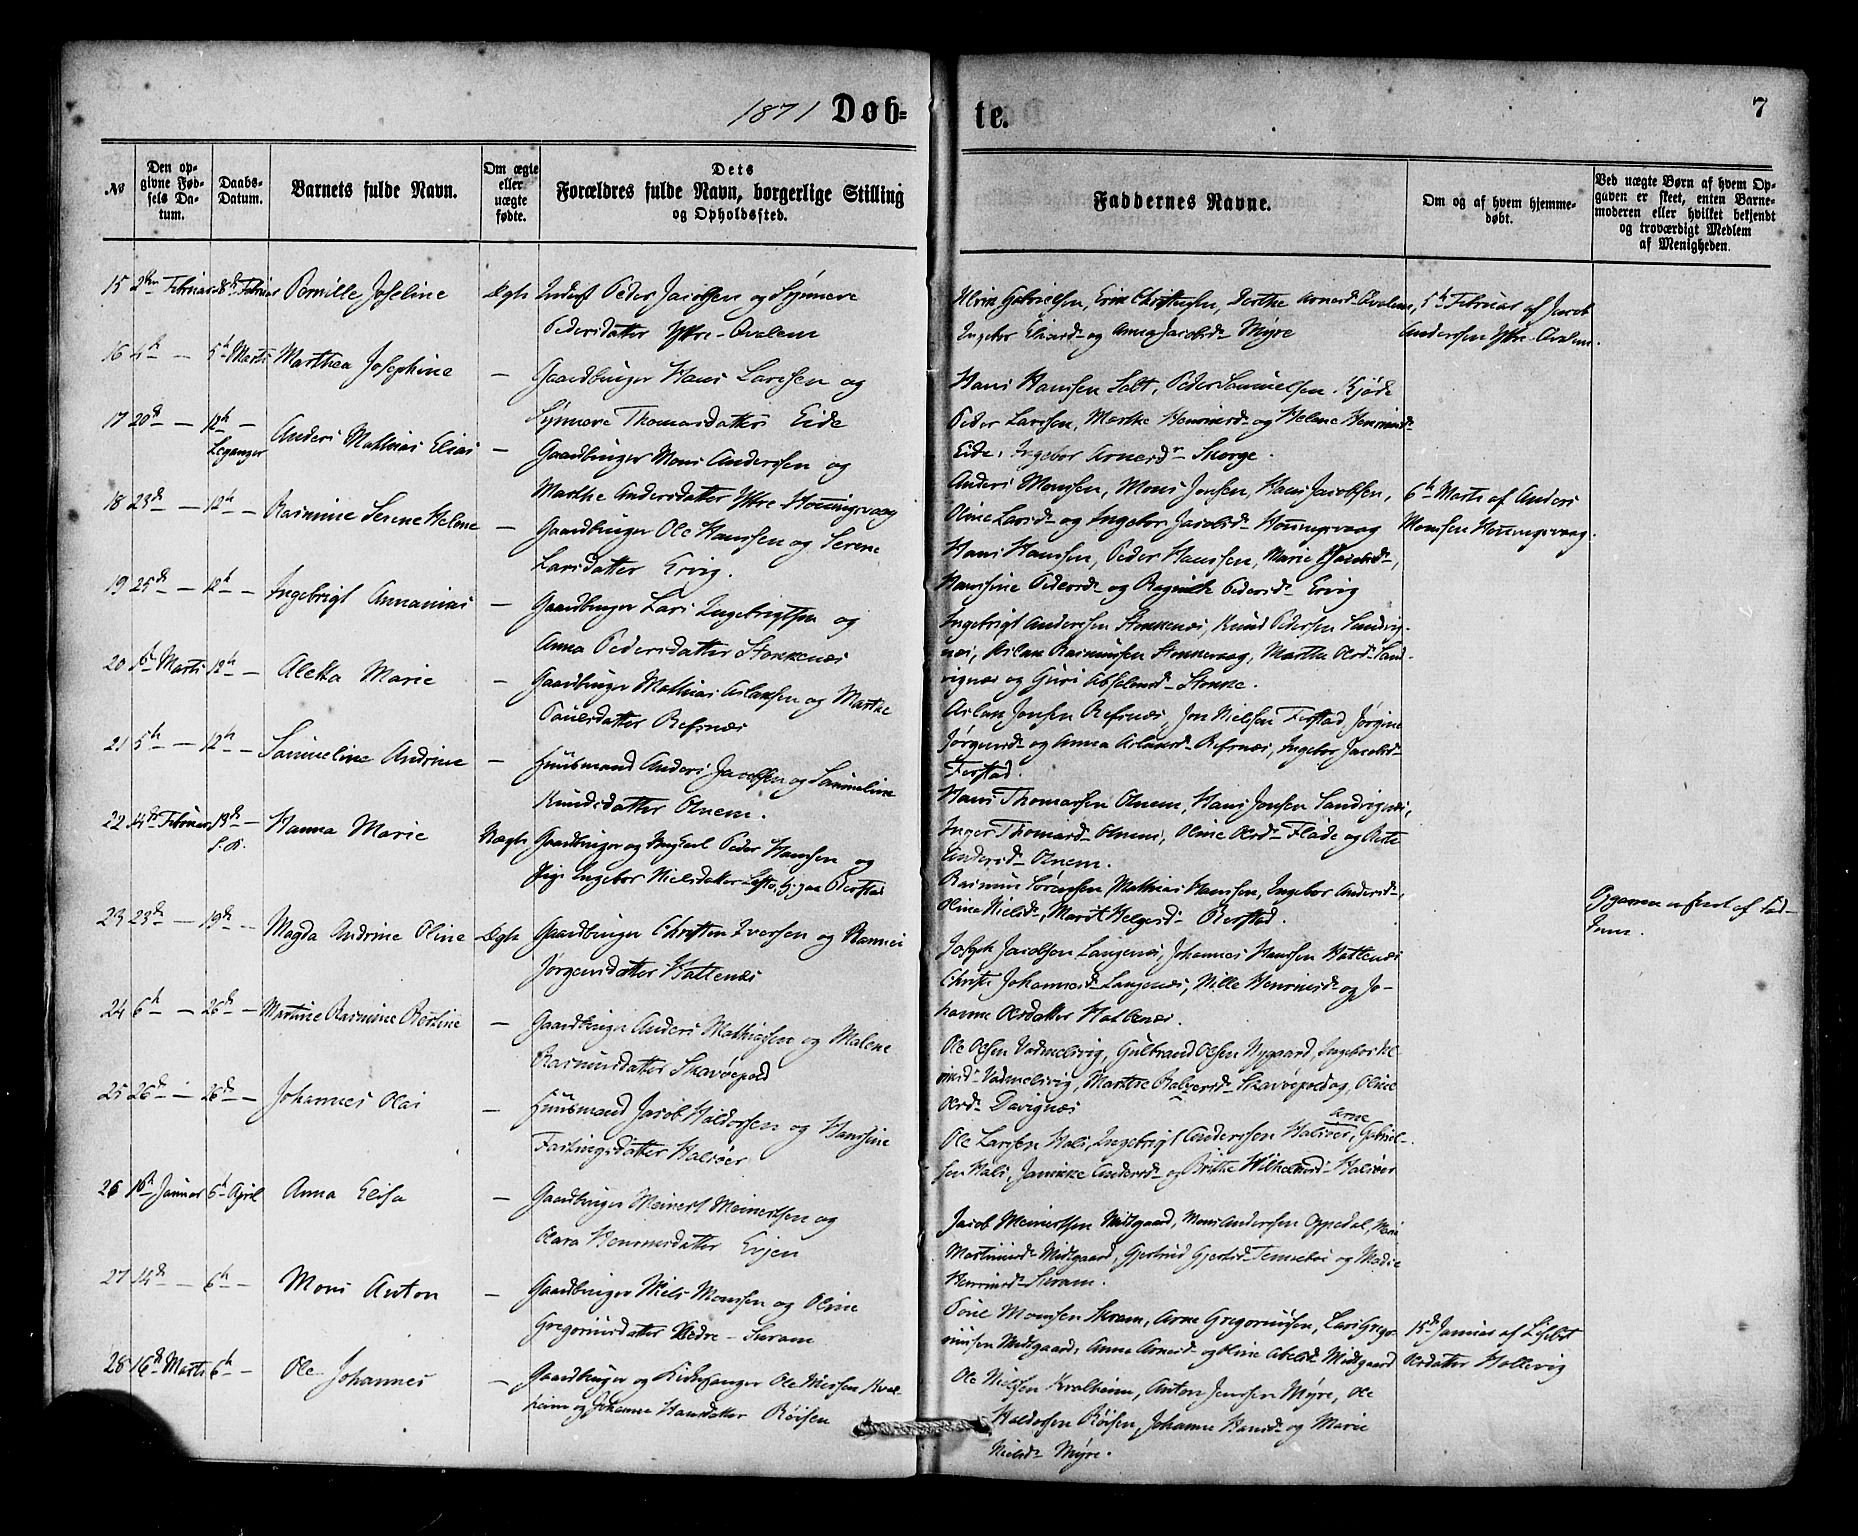 1871 Døb=
te.
7
№
Den op-
givne Fød-
sels Da-
tum.
Daabs-
Datum.
Barnets fulde Navn.
Om ægte
eller
uægte
fødte.
Dets
Forældres fulde Navn, borgerlige Stilling
og Opholdssted.
Faddernes Navne.
Om og af hvem hjemme-
døbt.
Ved uægte Børn af hvem Op-
gaven er skeet, enten Barne-
moderen eller hvilket bekjendt
og troværdigt Medlem
af Menigheden.
15 2den Februar 18de Februar Pernille Joseline Ægte Inderst Peder Jacobsen og Synneve
Pedersdatter Ytre-Qvalem
Gabrielsen, Erik Christensen, Dorthe Arnesd- Qvalem,
Ingebor Eliasd- og Anna Jacobsd- Myre
5th Februar af Jacob
Anderssen Ytre-Qvalem.
16 4th — 5th Marts Marthea Josephine — Gaardbruger Hans Larssen og
Synneve Thomasdatter Eide
Hans Hanssen Salt, Peder Samuelsen Kjøde
Peder Larssen, Marthe Henriksd- og Helene Henriksd-
Eide, Ingebor Arnesd- Skorge.
17 20de — 12th — Leganger Anders Mathias Elias — Gaardbruger Mons Anderssen og
Marthe Andersdatter Ytre Houningsvaag
Anders Monssen, Mons Jonsen, Hans Jacobsen,
Oline Larsd- og Ingebor Jacobsd- Houningsvaag
6th Marts af Anders
Monssen Houningsvaag.
18 23de — 12th — Rasmine Serene Helene — Gaardbruger Ole Hanssen og Serene
Larsdatter Ervig.
Hans Hanssen, Peder Hanssen, Marie
Hanssine Pedersd- og Pedersd- Ervig
19 25de — 12th — Ingebrigt Annanias — Gaardbruger Lars Ingebrigtsen og
Anna Pedersdatter Stokkenæs
Ingebrigt Anderssen Stokkenæs, Knud Pedersen Sandvig-
næs, Aslak Rasmussen Stokkevaag, Marthe Olsd- Sand-
vignæs og Guri Absalonsd- Stokke.
20 1st Marts 12th — Aletta Marie — Gaardbruger Mathias Aslaksen og Marthe
Poulsdatter Refsnæs
Aslak Jonsen Refsnæs, Jon Nielsen Ferstad, Jørgine
Jørgensd- og Anna Aslaksd- Refsnæs, Ingebor Jacobsd-
Ferstad.
21 5th — 12th — Samueline Andrine — Huusmand Anders Jacobsen og Samueline
Knudsdatter Osnem.
Hans Thomassen Osnem, Hans Jonsen Sandvignæs,
Inger Thomasd- Osnem, Oline Olsd- Flade og Berte
Andersd- Osnem.
22 14de Februar 13de — Hanna Marie Uægte Gaardbruger og Ungkarl Peder Hanssen og
Pige Ingebor Nielsdatter begge Berstad
Rasmus Sørenssen, Mathias Hanssen, Ingebor Andersd-,
Oline Nielsd-, Marit Helgesd- Berstad.
Opgaven af
23 23de — 19de — Magda Andrine Oline Ægte Gaardbruger Christen Iversen og Rannei
Jørgensdatter Hattenæs
Joseph Jacobsen Langenæs, Johannes Hanssen Hattenæs
Christi Johannesd- Langenæs, Nille Henriksd- og Jo-
hanne Olsdatter Hattenæs.
24 6th — 26de — Martine Rasmine Bertine — Gaardbruger Anders Mathiassen og Malene
Rasmusdatter Skavøepold
Ole Olsen Vadmelsvig, Gulbrand Olsen Nygaard, Ingebor
Vadmelsvig, Marthe Skavøepold og Oline
Olsd- Davignæs
25 26de — 26de — Johannes Olai — Huusmand Jacob Haldorsen og Hanssine
Fastingsdatter Halsøer
Ole Larssen Hals, Ingebrigt Anderssen Halsøer, Arne Gabriel-
sen Hals, Jannike Andersd- og Brithe Wilhelmsd- Halsøer
26 16th Januar 6th April Anna Elisa — Gaardbruger Meinert Meinertsen og
Olara Hemmersdatter Erjen
Jacob Meinertsen Midtgaard, Mons Anderssen Oppedal,
Martinusd- Midtgaard, Gjertrud Gjertsd- Tennebø og
Henriksd- Skram.
27 14de — 6th — Mons Anton — Gaardbruger Niels Monssen og Oline
Gregoriusdatter Nedre-Skram
Poul Monsen Skram, Arne Gregoriussen, Lars Gregor-
iussen Midtgaard, Anna Arnesd- og Oline Abelsd- Midtgaard
15de Januar af Lisebet
Olsdatter Hollevig
28 16de Marts 6th — Ole Johannes — Gaardbruger og Kirkesanger Ole Nielssen Kval-
heim og Johanne Hansdatter Røisen
Ole Nielsen Kvalheim, Anton Jenssen Myre, Ole
Haldorssen Røisen, Johanne Hansd- og Marie
Nielsd- Myre.